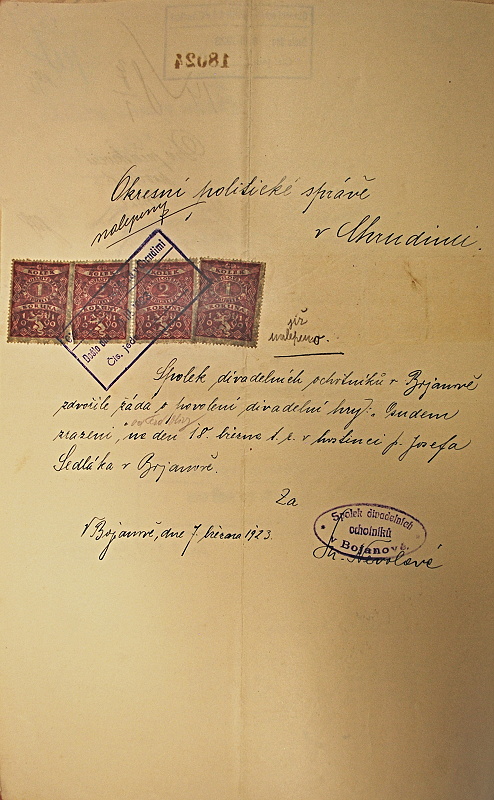 18024
Okresní politické správě
nalepeny
v Chrudimi.
KOLEK KOLEK KOLEK KOLEK
1 2 1
KORUNA KORUNA KORUNY KORUNA
Došlo dne
Čís. jed.
již
nalepeno.
Spolek divadelních ochotníků v Bojanově
zdvořile žádá o povolení divadelní hry: „Osudem
zrazeni," na den 18. března t. r. v hostinci p. Josefa
Sedláka v Bojanově.
Za
Spolek divadelních
ochotníků
v Bojanově.
V Bojanově, dne 7. března 1923.
Nevolová